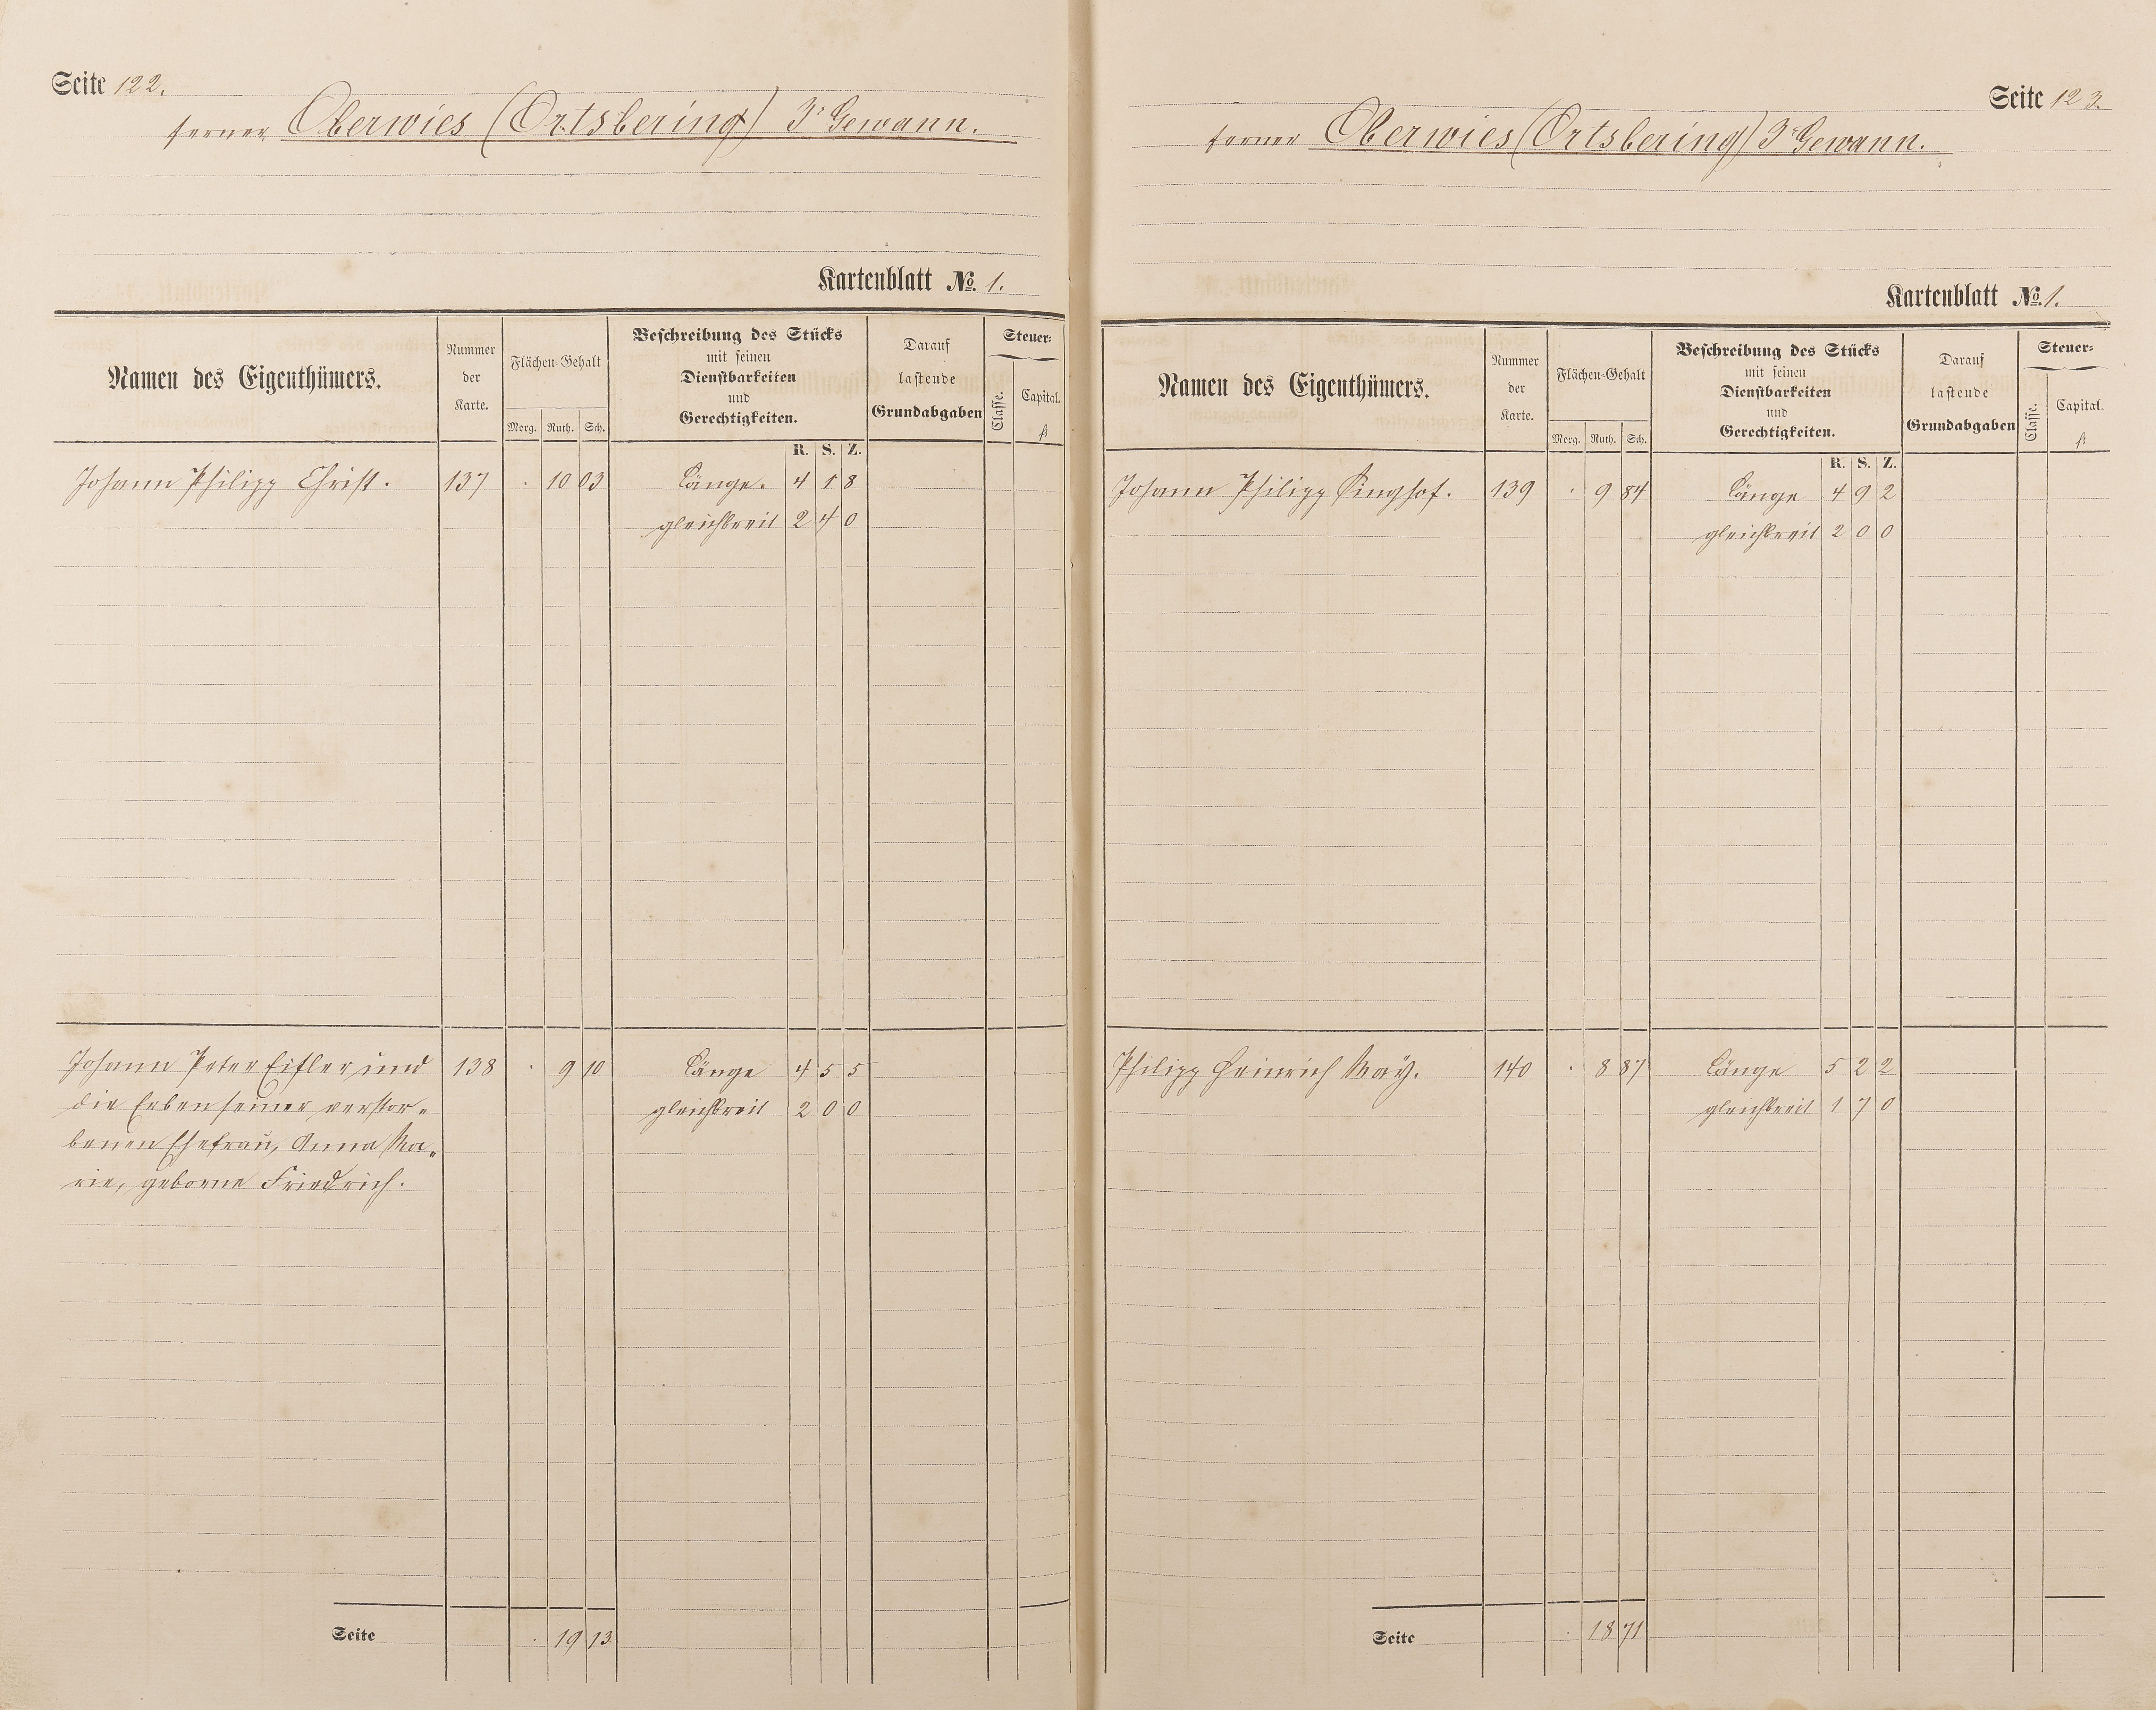 Seite 122.
ferner Oberwies (Ortsbering) 3r Gewann.
Kartenblatt No. 1.
Namen des Eigenthümers.
Nummer der Karte.
Flächen-Gehalt
Morg. Ruth. Sch.
Beschreibung des Stücks
mit seinen
Dienstbarkeiten
und
Gerechtigkeiten.
Darauf
lastende
Grundabgaben
Steuer-
Classe. Capital.
fl
R. S. Z.
Johann Philipp Christ. 137 . 10 03 Länge. 4 1 8
gleichbreit 2 4 0
Johann Peter Eifler und 138 . 9 10 Länge 4 5 5
die Erben seiner verstor- gleichbreit 2 0 0
benen Ehefrau, Anna Ma-
rie, geborne Friedrich.
Seite . 19 13
Seite 123.
ferner Oberwies (Ortsbering) 3r Gewann.
Kartenblatt No. 1.
Namen des Eigenthümers.
Nummer der Karte.
Flächen-Gehalt
Morg. Ruth. Sch.
Beschreibung des Stücks
mit seinen
Dienstbarkeiten
und
Gerechtigkeiten.
Darauf
lastende
Grundabgaben
Steuer-
Classe. Capital.
fl
R. S. Z.
Johann Philipp 139 . 9 84 Länge 4 9 2
gleichbreit 2 0 0
Philipp Heinrich May. 140 . 8 87 Länge 5 2 2
gleichbreit 1 7 0
Seite . 18 71